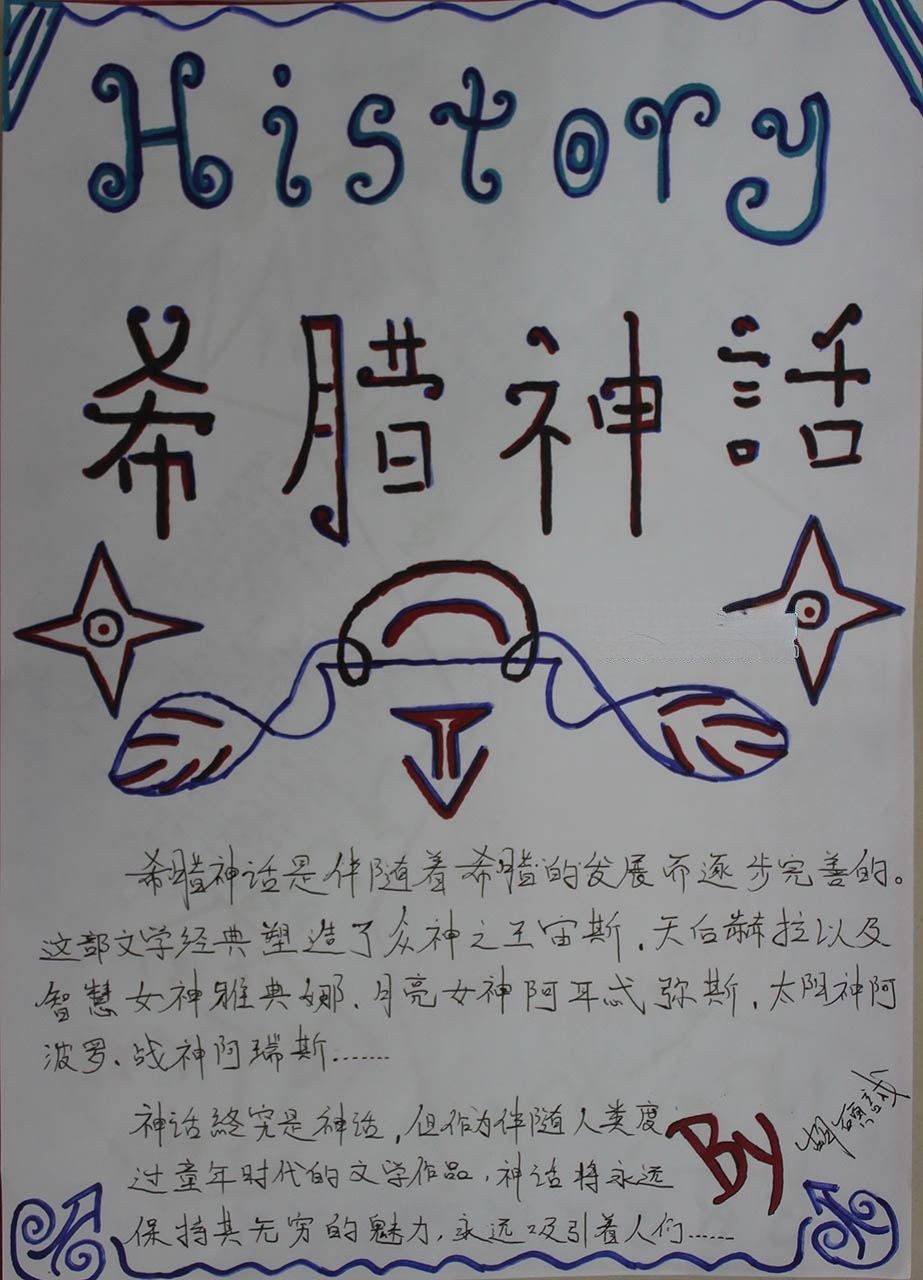 History
希腊神話
希腊神话是伴随着希腊的发展而逐步完善的。
这部文学经典塑造了众神之王宙斯、天后赫拉以及
智慧女神雅典娜、月亮女神阿耳忒弥斯、太阳神阿
波罗、战神阿瑞斯……
神话终究是神话，但作为伴随人类度
过童年时代的文学作品，神话将永远
保持其无穷的魅力，永远吸引着人们……
By